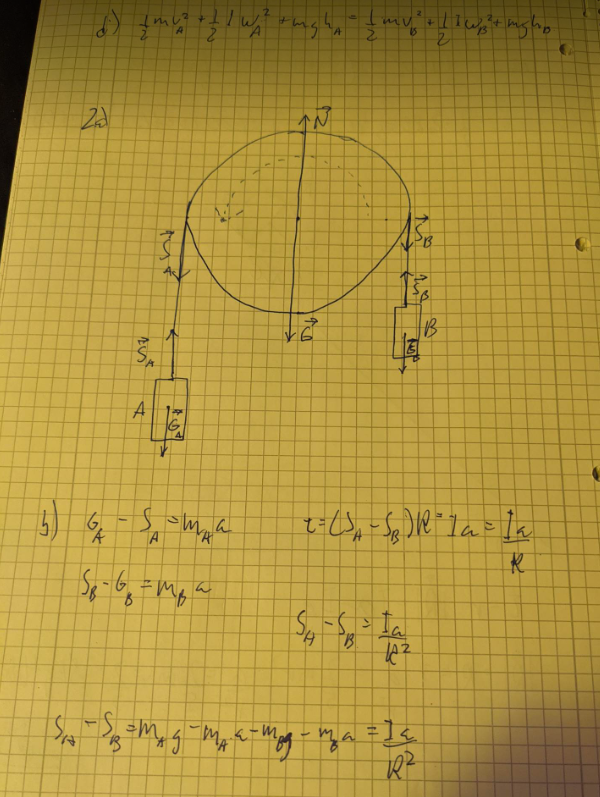 d) ½mv_A² + ½Iω_A² + mgh_A = ½mv_B² + ½Iω_B² + mgh_B
2a)
N⃗
S⃗_A
S⃗_B
S⃗_B
G⃗
B
G⃗_B
S⃗_A
A
G⃗_A
b) G_A - S_A = m_A a
τ = (S_A - S_B)R = Ia = Ia/R
S_B - G_B = m_B a
S_A - S_B = Ia/R²
S_A - S_B = m_A g - m_A a - m_B g - m_B a = Ia/R²